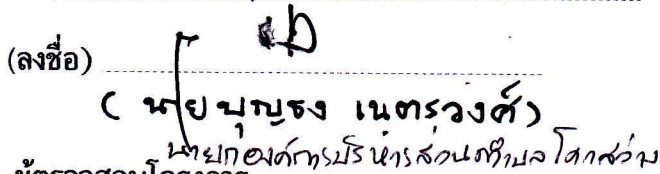 (ลงชื่อ)
( นายบุญธง เนตรวงศ์)
นายกองค์การบริหารส่วนตำบลโคกสว่าง
ผู้ตรวจสอบโครงการ